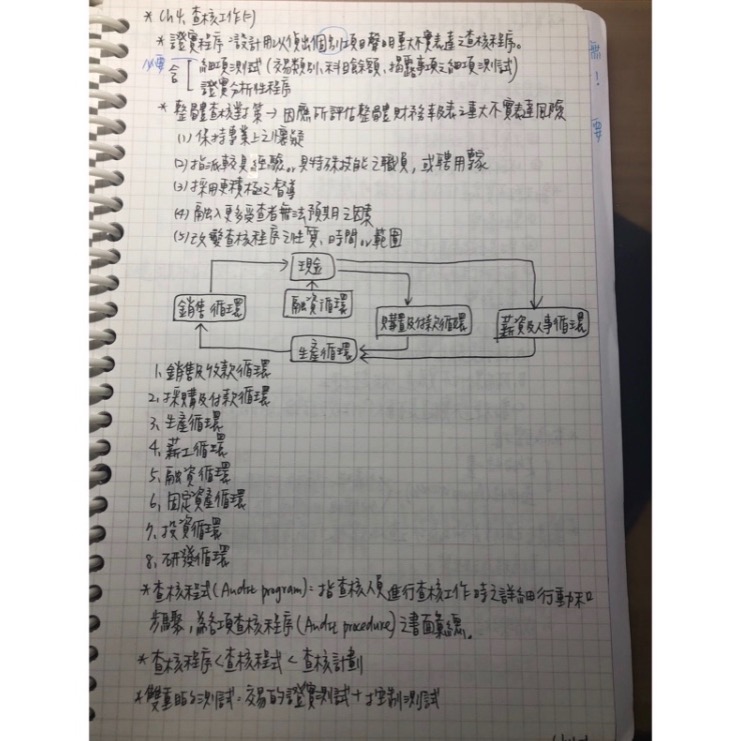 * Ch4. 查核工作(下)
* 證實程序:設計用以偵出個別項目聲明重大不實表達之查核程序。
必要 含 細項測試(交易類別、科目餘額、揭露事項之細項測試)
證實分析性程序
* 整體查核對策→因應所評估整體財務報表之重大不實表達風險
(1) 保持專業上之懷疑
(2) 指派較具經驗or具特殊技能之職員,或聘用專家
(3) 採用更積極之督導
(4) 融入更多受查者無法預期之因素
(5) 改變查核程序之性質、時間or範圍
現金
銷售循環 融資循環 購置及付款循環 薪資及人事循環
生產循環
1. 銷售及收款循環
2. 採購及付款循環
3. 生產循環
4. 薪工循環
5. 融資循環
6. 固定資產循環
7. 投資循環
8. 研發循環
* 查核程式(Audit program):指查核人員進行查核工作時之詳細行動和
步驟,為各項查核程序(Audit procedure)之書面彙總。
* 查核程序<查核程式<查核計劃
* 雙重目的測試:交易的證實測試+控制測試